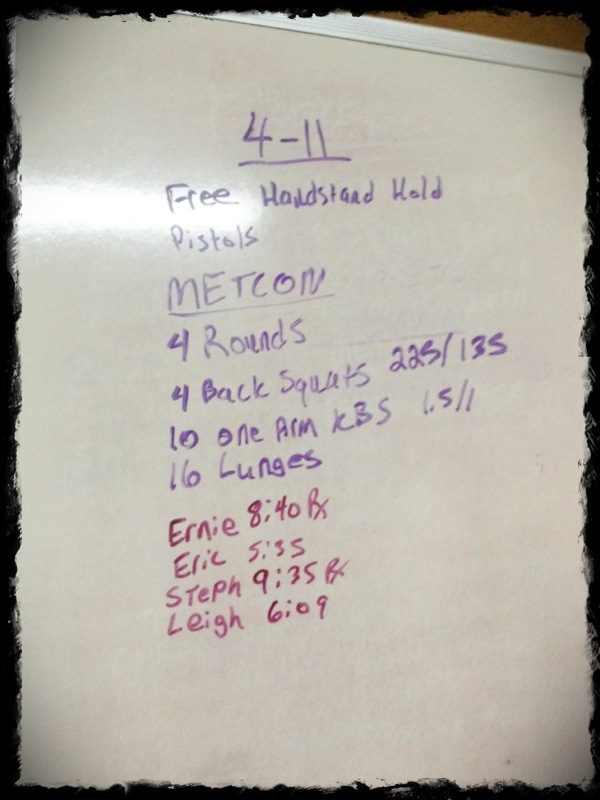 4-11
Free Handstand Hold
Pistols
METCON
4 Rounds
4 Back Squats 225/135
10 one Arm KBS 1.5/1
16 Lunges
Ernie 8:40 Rx
Eric 5:35
Steph 9:35 Rx
Leigh 6:09